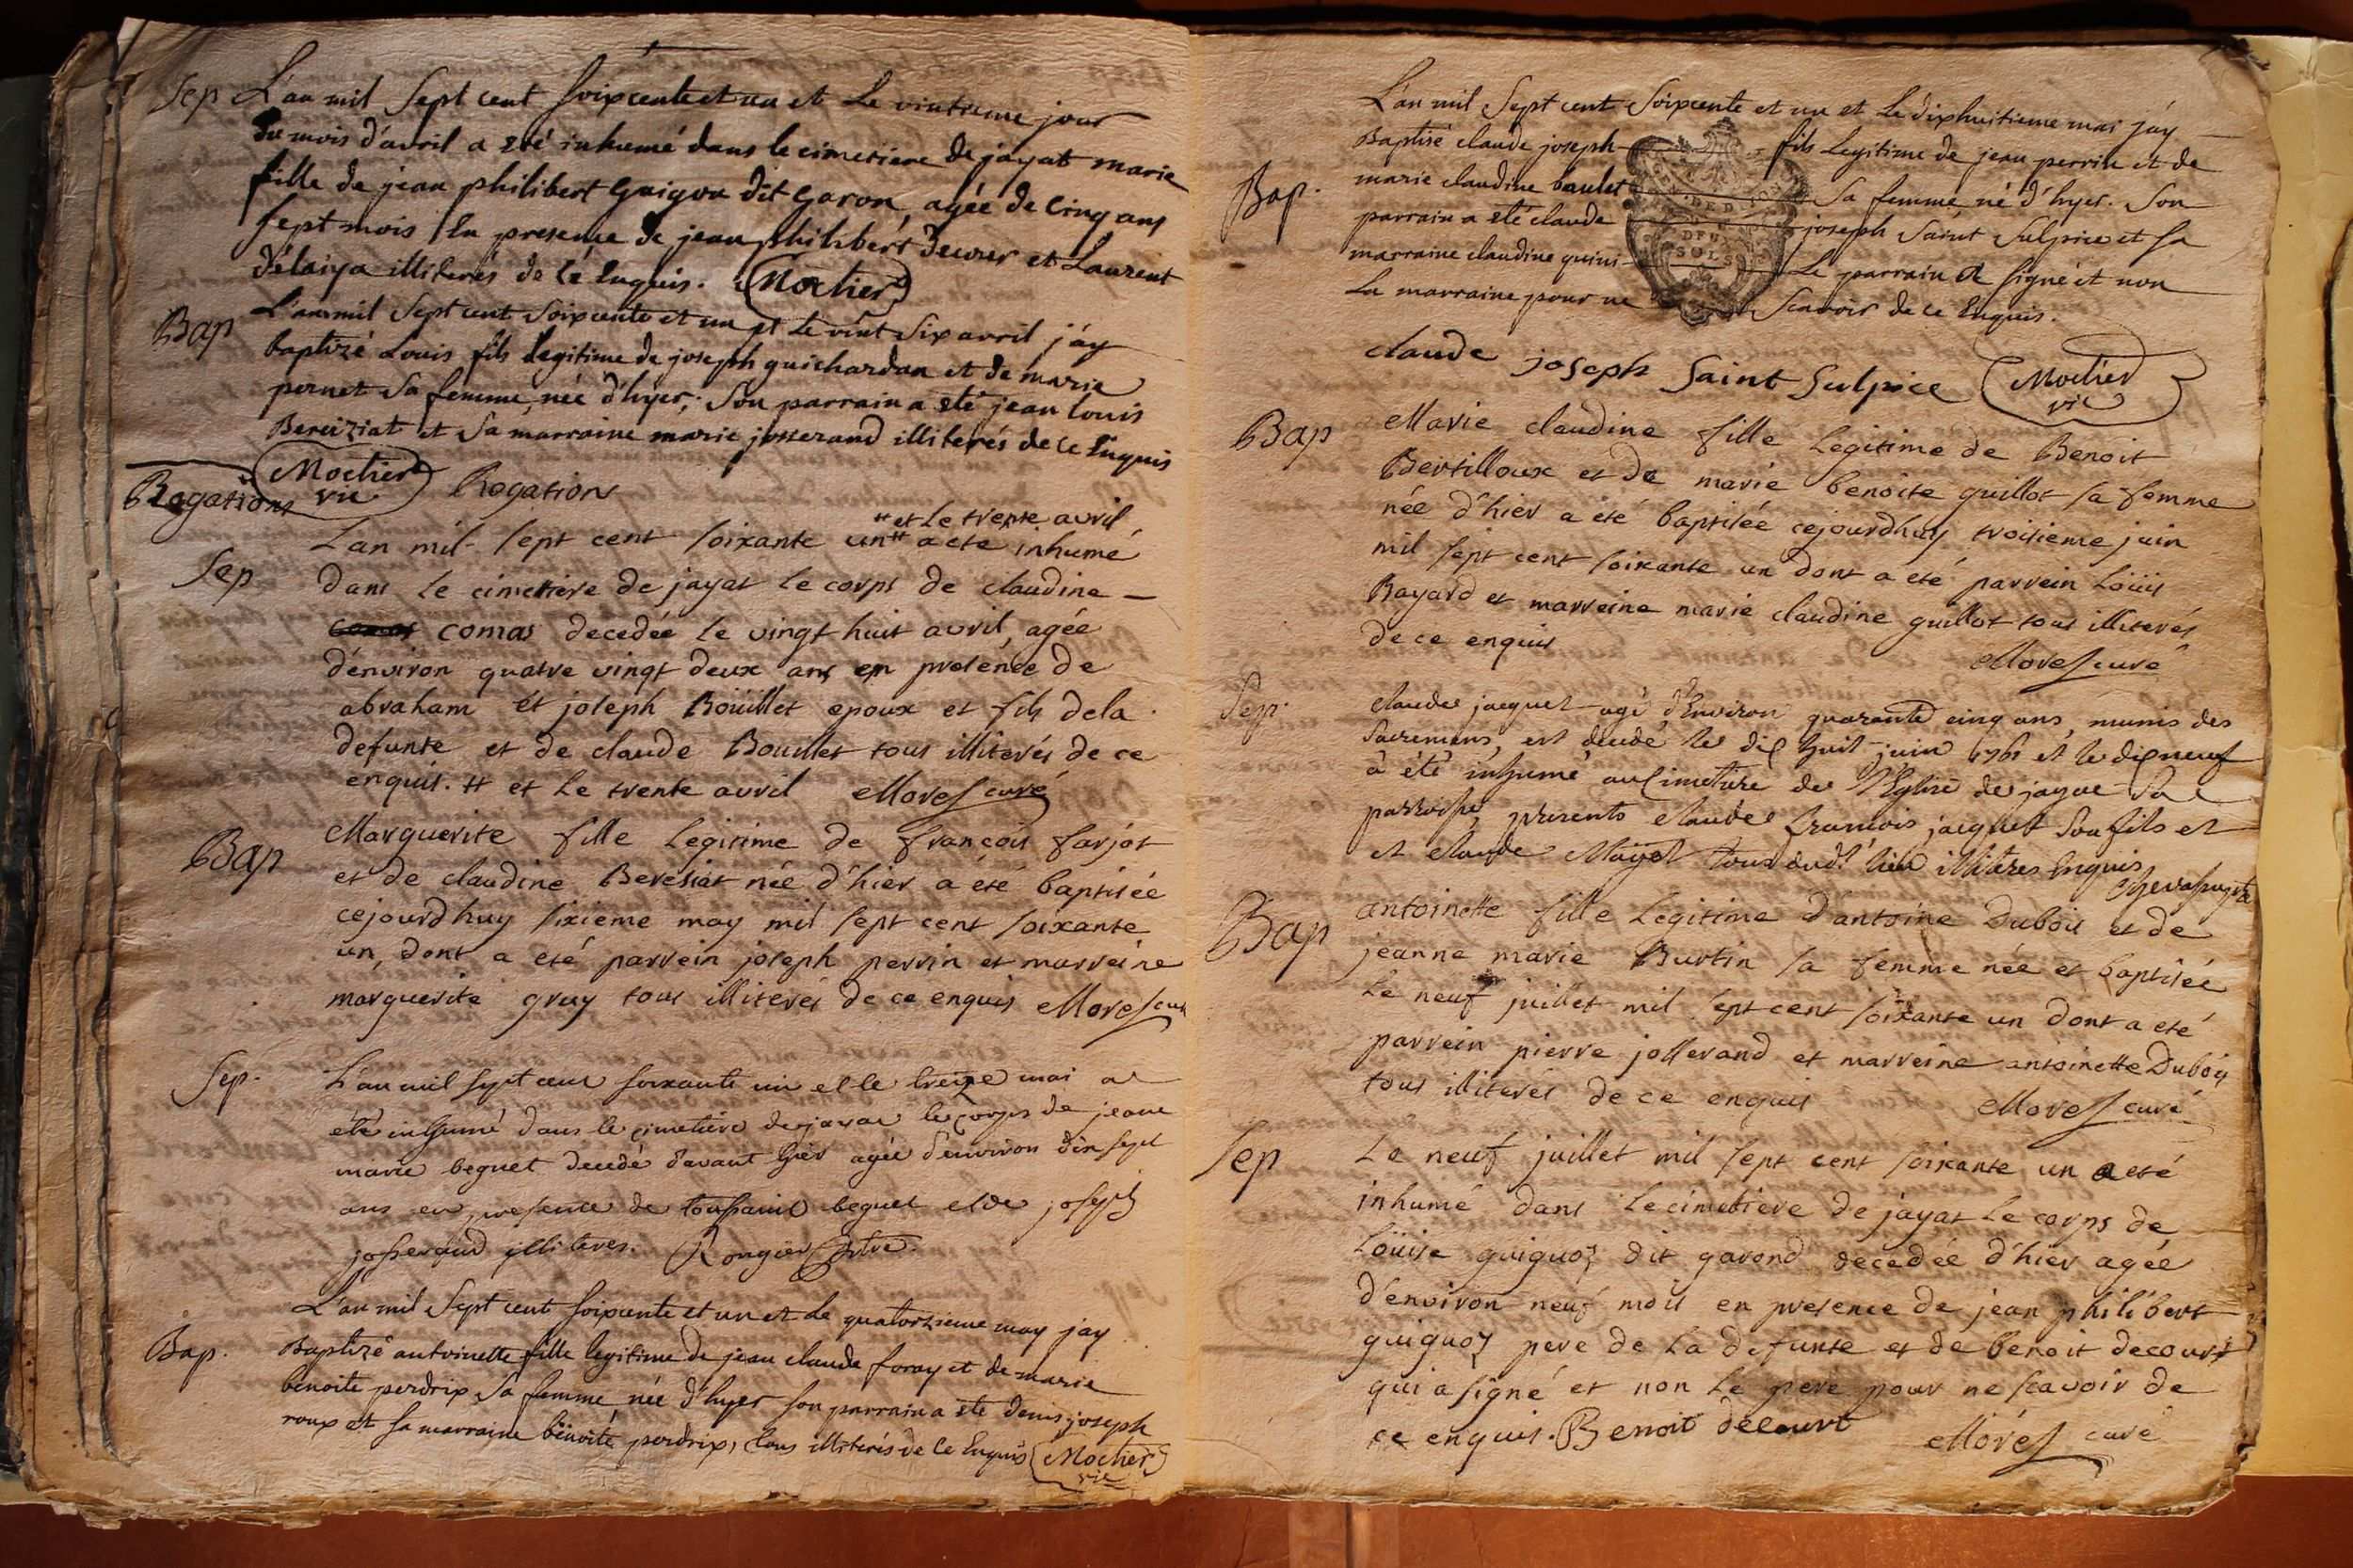 Sep L'an mil Sept cent soixcente et un et le vintieme jour
du mois d'avril a eté inhumé dans le cimetiere de jayat marie
fille de jean philibert Guigou dit Garon, agée de cinq ans
sept mois En presence de jean philibert Decour et Laurent
délaiya illiterés de cé Enquis. Mochier
Bap L'an mil Sept cent Soixcente et un et le vint six avril j'ay
baptizé Louis fils legitime de joseph guichardan et de marie
pernet sa femme, née d'hyer; Son parrain a eté jean louis
Bereiziat et sa marraine marie josserand illiterés de ce Enquis
Mochier
vic
Rogations Rogations
# et le trente avril
Sep L'an mil sept cent soixante un # a eté inhumé
dans le cimetiere de jayat le corps de claudine
comas decedée le vingt huit avril, agée
d'environ quatre vingt deux ans en presence de
abraham et joseph Boüillet epoux et fils de la
defunte et de claude Bouillet tous illiterés de ce
enquis. # et le trente avril Morel curé
Bap Marguerite fille legitime de françois farjot
et de claudine Beresiat née d'hier a eté baptisée
cejourdhuy sixieme may mil sept cent soixante
un, dont a eté parrein joseph perrin et marreine
marguerite gruy tous illiterés de ce enquis Morel cur
Sep. L'an mil sept cent soixante un et le treize mai a
été inhumé dans le cimetiere de jayat le corps de jeane
marie beguet decedé d'avant hier agée d'environ dix sept
ans en presence de toussaint beguet et de joseph
josserand illiteres. Rongier ptre.
L'an mil Sept cent soixcente et un et le quatorzieme may jay
Bap. Baptizé antoinette fille legitime de jean claude foray et de marie
benoite perdrix sa femme née d'hyer son parrain a eté denis joseph
roux et sa marraine bénoite perdrix, tous illiterés de ce Enquis Mochier
vic
L'an mil Sept cent Soixcente et un et le dixhuitieme mai j'ay
Baptisé claude joseph fils Legitime de jean perrin et de
Bap. marie claudine baulet sa femme né d'hyer. Son
parrain a eté claude joseph Saint Sulpice et sa
marraine claudine quini Le parrain a signé et non
la marraine pour ne Scavoir de ce Enquis.
GEN. DE DIJON
DEUX
SOLS
claude joseph Saint Sulpice Mochier
vic
Bap Marie claudine fille legitime de Benoit
Bertilloux et de marie benoite guillot sa femme
née d'hier a eté baptisée cejourdhuy troisieme juin
mil sept cent soixante un dont a eté parrein Loüis
Bayard et marreine marie claudine guillot tous illiterés
de ce enquis Morel curé
Sep. claude jacquet agé d'Environ quarante cinq ans, munis des
Sacremens, est decedé le dix huit juin 1761 et le dix neuf
à été inhumé au Cimetiere de l'Eglise de jayat Sa
parroisse, presents claude francois jacquet Son fils et
et claude Mayet tous dud.t lieu illiteres Enquis
Bap antoinette fille legitime d'antoine Dubois et de
jeanne marie Burtin sa femme née et baptisée
le neuf juillet mil sept cent soixante un dont a eté
parrein pierre josserand et marreine antoinette Dubois
tous illiterés de ce enquis Morel curé
Sep Le neuf juillet mil sept cent soixante un a eté
inhumé dans le cimetiere de jayat le corps de
Loüise guiguoz dit garond decedée d'hier agée
d'environ neuf mois en presence de jean philibert
guiguoz pere de la defunte et de benoit decourt
qui a signé et non le pere pour ne scavoir de
ce enquis. Benoit decourt Morel curé